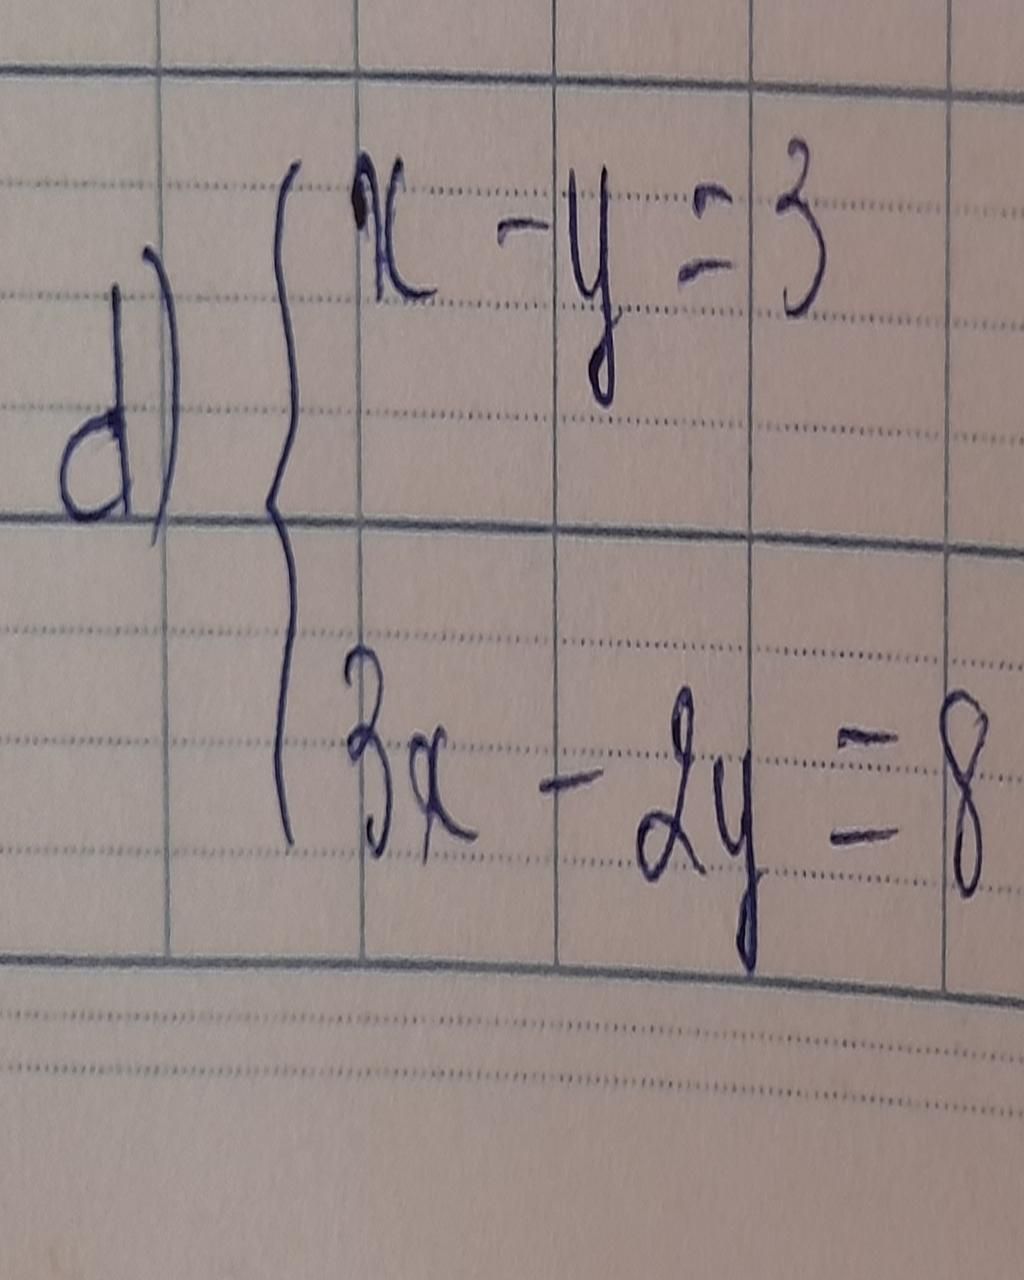 d) { x - y = 3
3x - 2y = 8